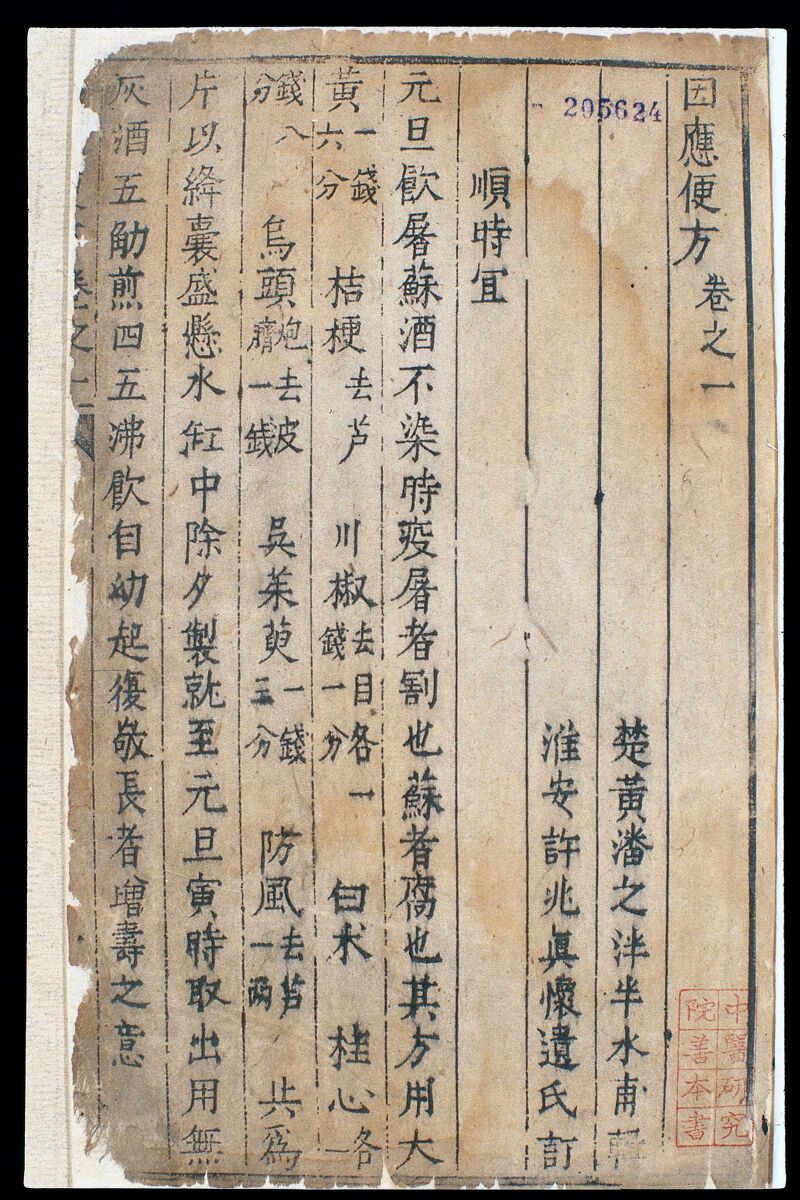 因應便方 卷之一
205624
楚黃潘之泮半水甫輯
淮安許兆真懷遺氏訂
順時宜
元旦飲屠蘇酒不染時疫屠者割也蘇者腐也其方用大
黃一錢六分 桔梗去芦 川椒去目各一錢一分 白朮 桂心各一
錢八分 烏頭炮去波臍一錢 吳茱萸一錢三分 防風去芦一兩 共爲
片以絳囊盛懸水缸中除夕製就至元旦寅時取出用無
灰酒五觔煎四五沸飲自幼起復敬長者增壽之意
卷之一
中醫研究
院善本書